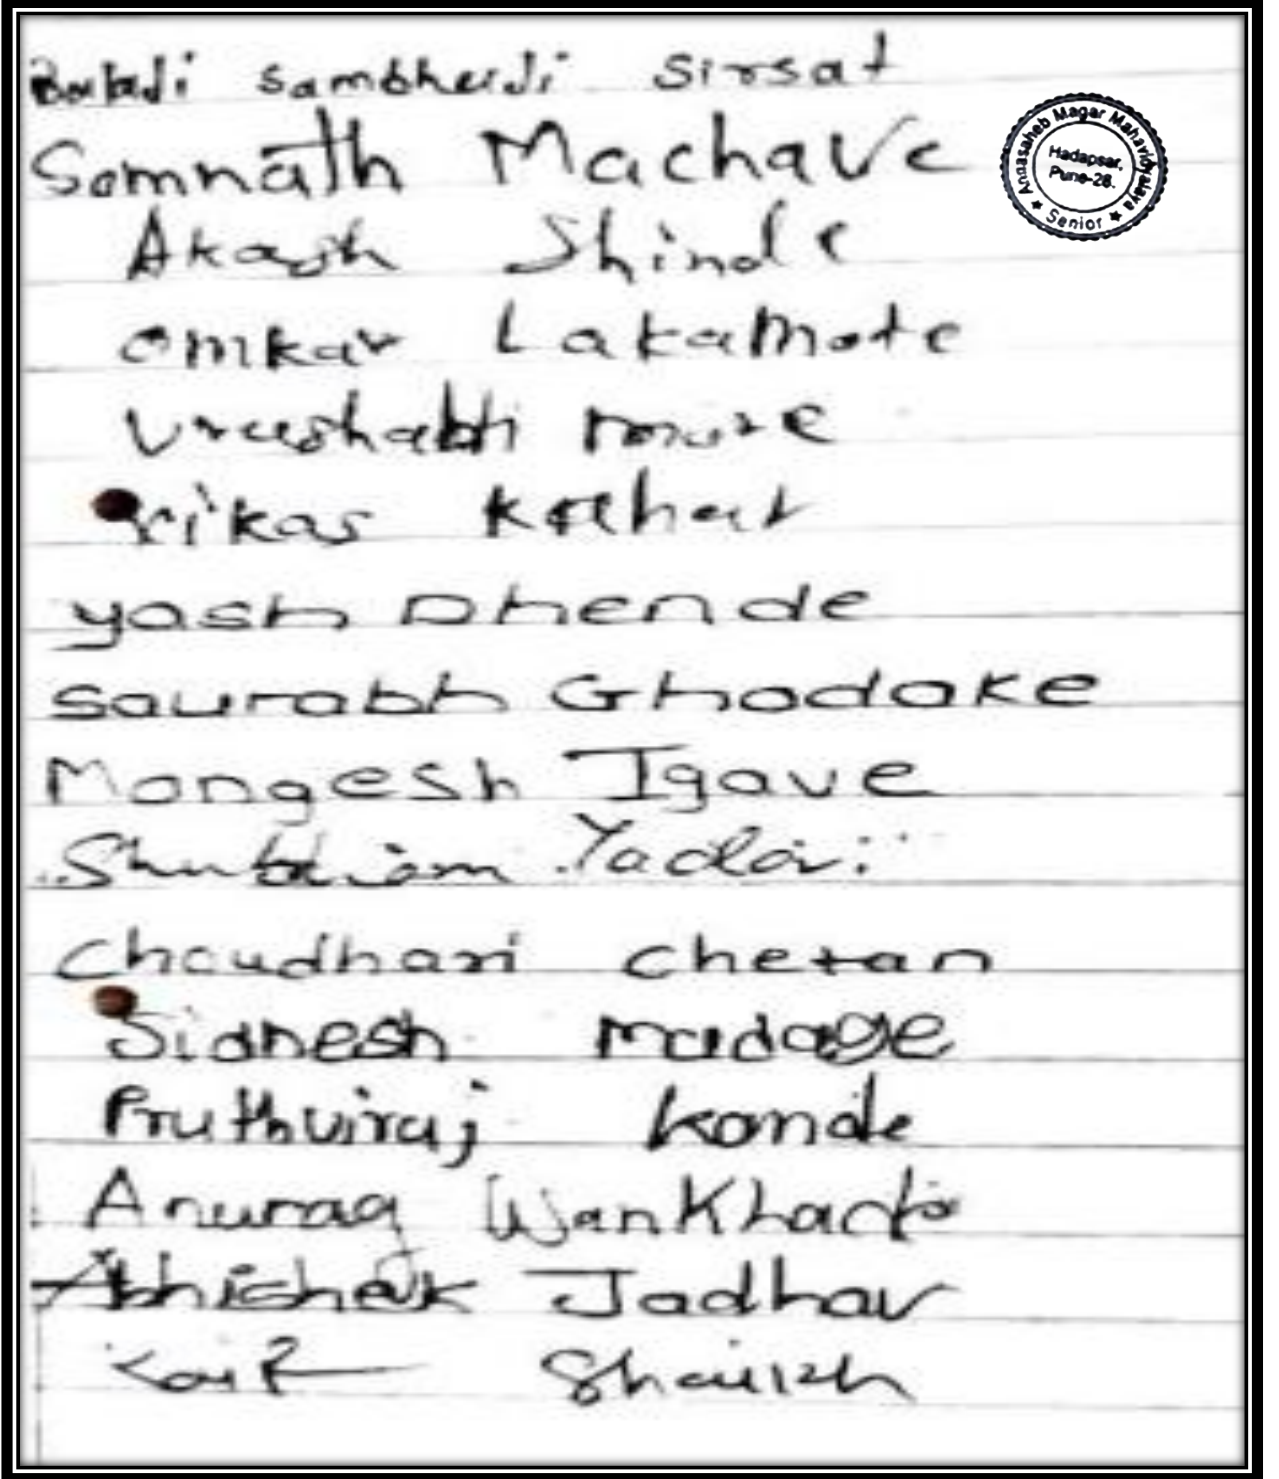 Balaji sambhaji sirsat
Somnath Machave
Annasaheb Magar Mahavidyalaya
Hadapsar,
Pune-28.
★ Senior ★
Akash Shinde
omkar Lakamote
Vrushabh more
vikas
yash Dhende
saurabh Ghodake
Mangesh Igave
Shubham Yadav
Choudhari chetan
Sidhesh madage
Pruthviraj kande
Anurag
Abhishek Jadhav
Kaif Shaikh